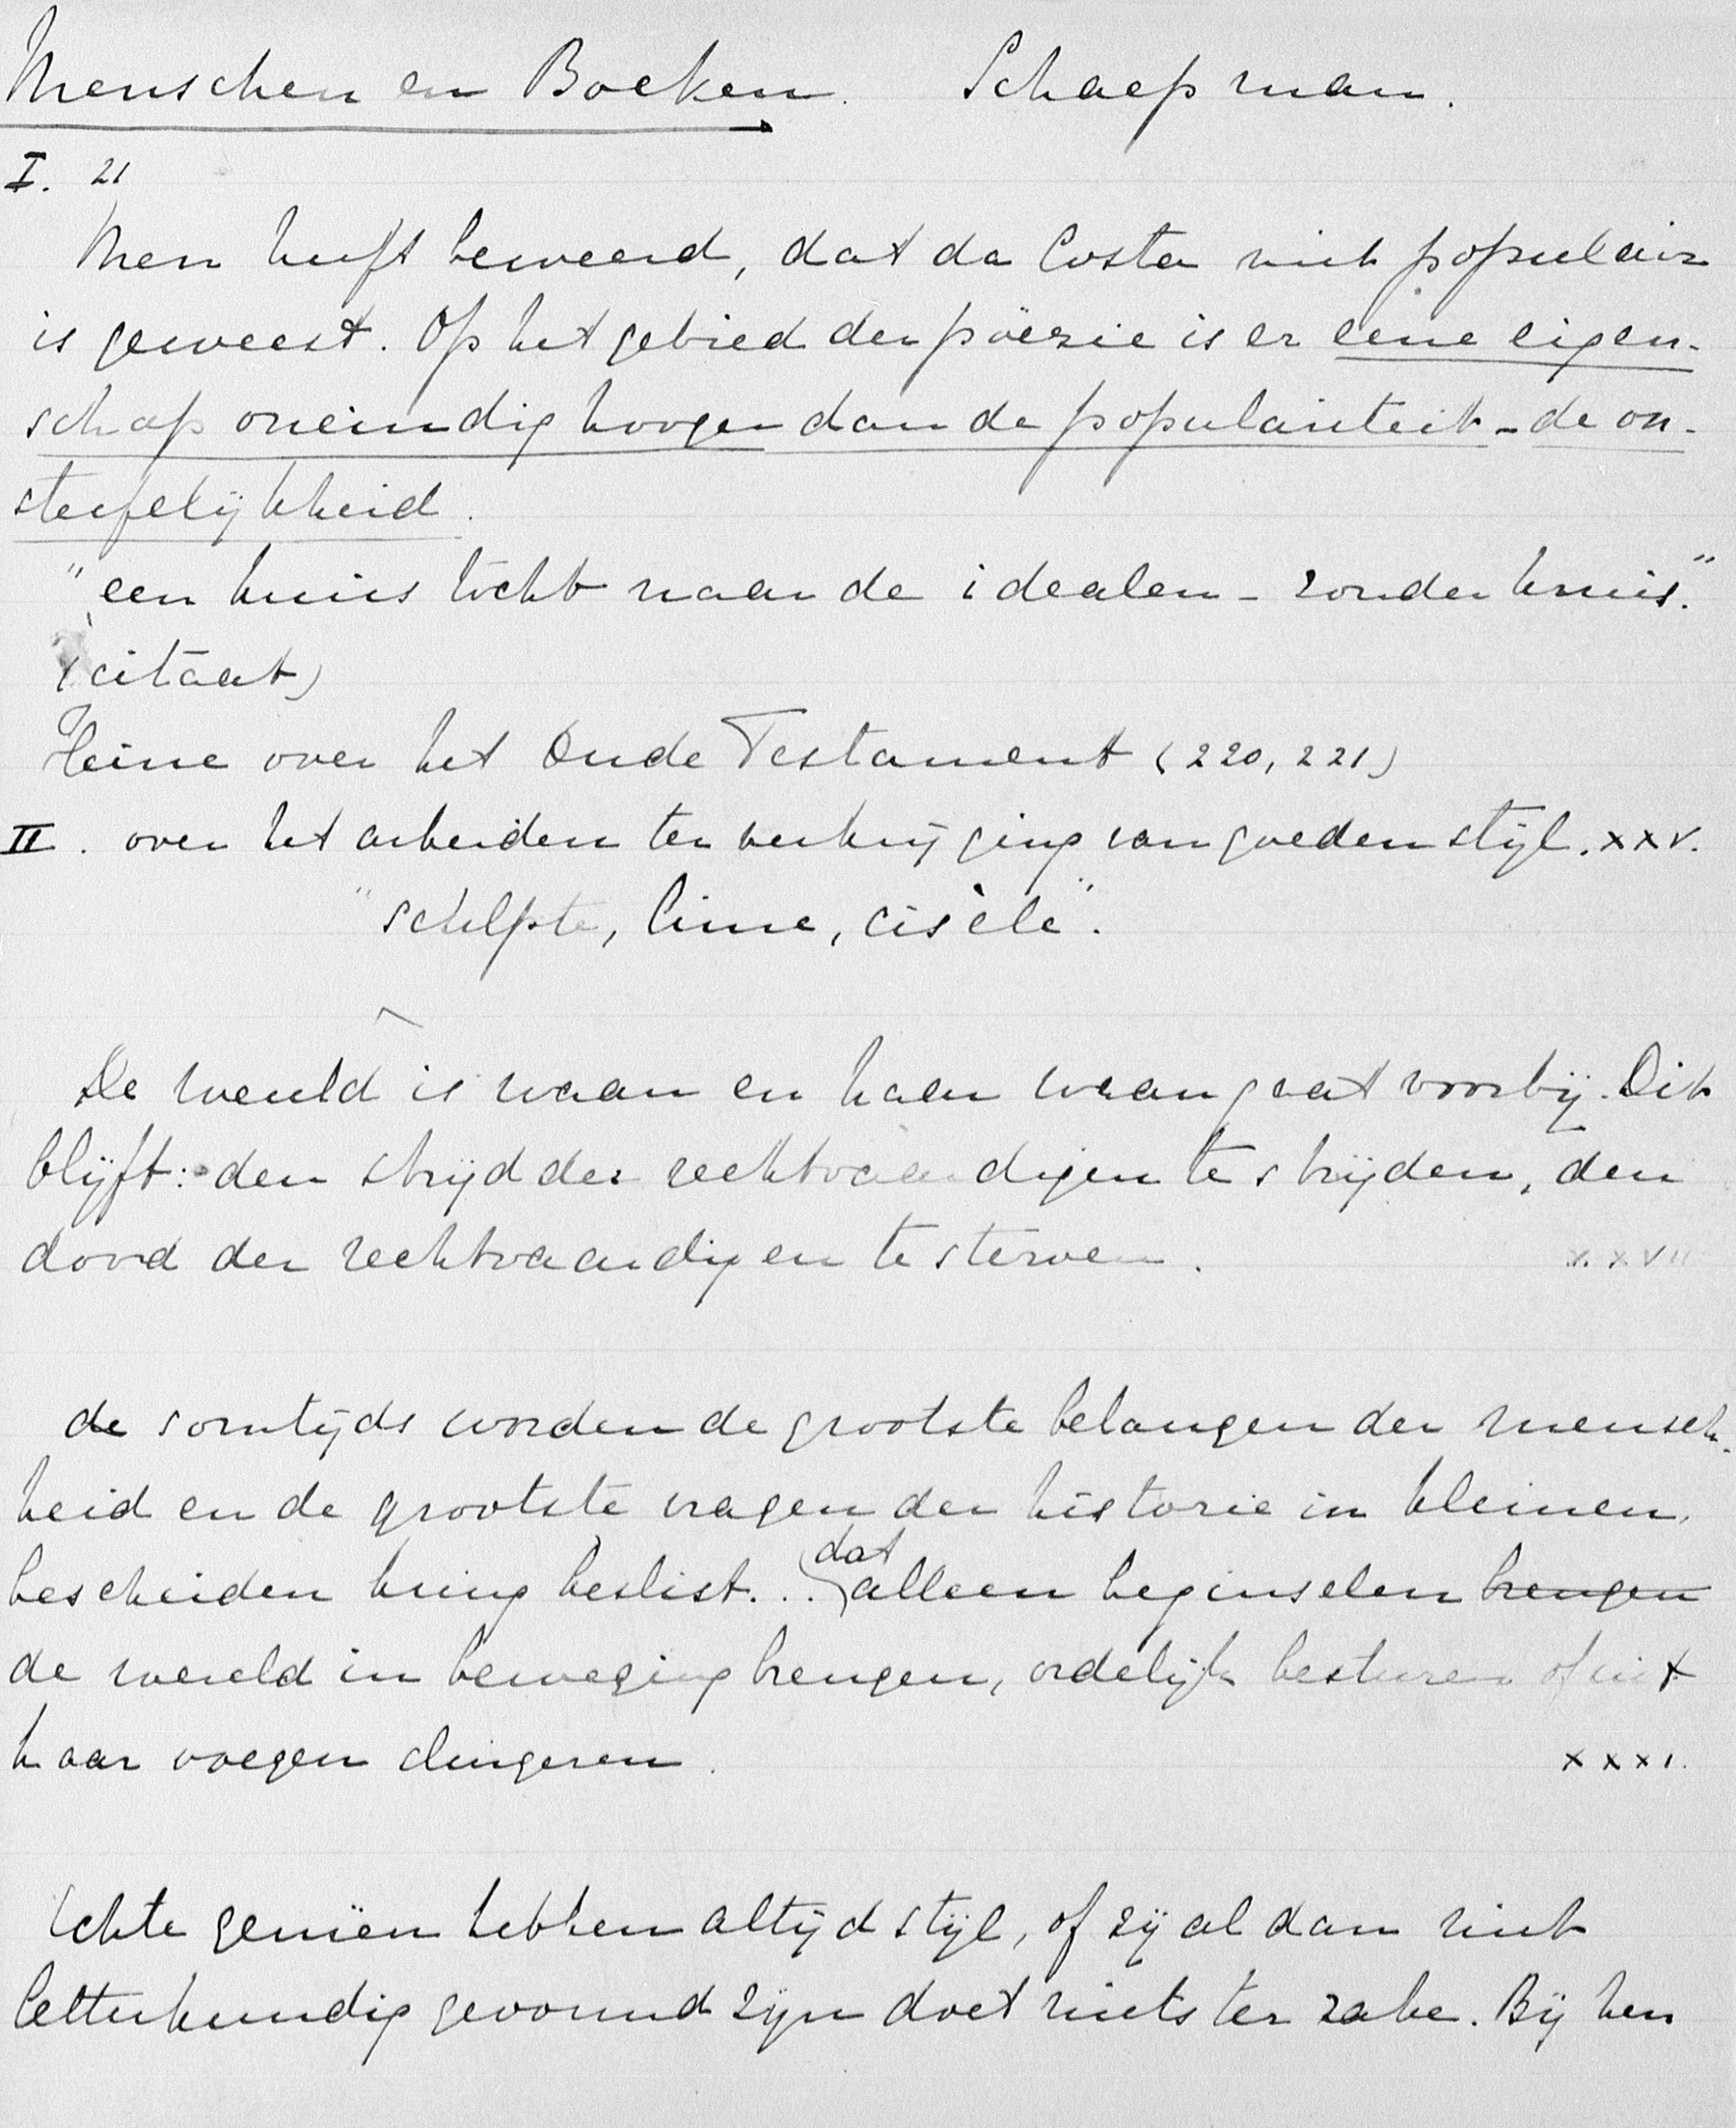 Menschen en Boeken. Schaepman.
I. 21
Men heeft beweerd, dat da Costa niet populair
is geweest. Op het gebied der poëzie is er eene eigen-
schap oneindig hooger dan de populariteit - de on-
sterfelijkheid.
"een kruistocht naar de idealen - zonder kruis."
(citaat)
Heine over het Oude Testament (220, 221)
II. over het arbeiden ter verkrijging van goeden stijl. XXV.
"sculpte, lime, cisèle".
De wereld is waan en haar waan gaat voorbij. Dit
blijft: den strijd der rechtvaardigen te strijden, den
dood der rechtvaardigen te sterven. XXVII
de somtijds worden de grootste belangen der mensch-
heid en de grootste vragen der historie in kleinen,
bescheiden kring beslist... dat alleen beginselen brengen
de wereld in beweging brengen, ordelijk besturen of uit
haar voegen slingeren. XXXI.
Echte genieën hebben altijd stijl, of zij al dan niet
letterkundig gevormd zijn doet niets ter zake. Bij hen